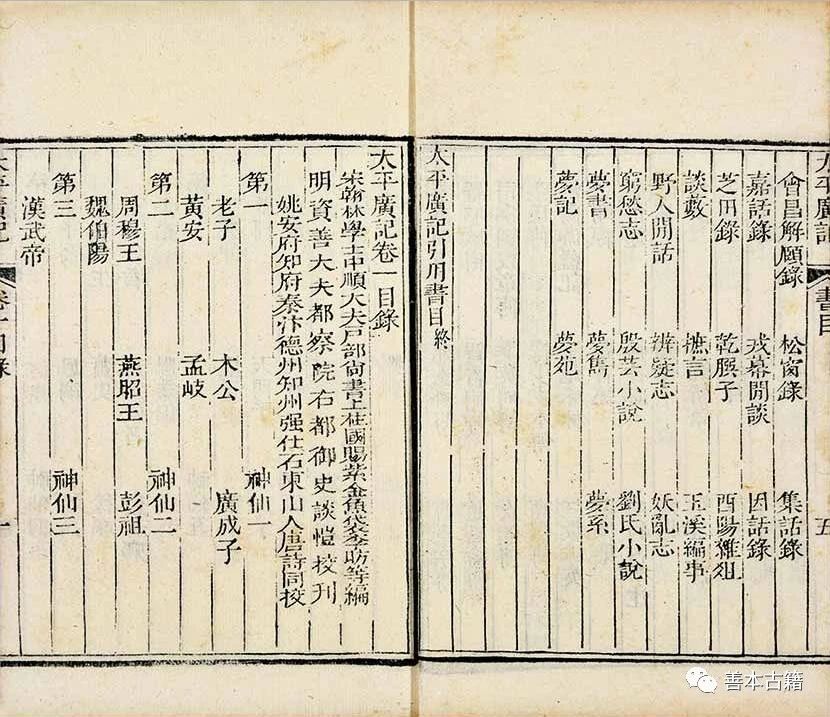 太平廣記
書目
五
會昌解頤錄 松窗錄 集話錄
嘉話錄 戎幕閒談 因話錄
芝田錄 乾𦠆子 酉陽雜俎
談藪 摭言 玉溪編事
野人閒話 辨疑志 妖亂志
窮愁志 殷芸小說 劉氏小說
夢書 夢雋 夢系
夢記 夢苑
太平廣記引用書目終
太平廣記卷一目錄
宋翰林學士中順大夫戶部尚書上柱國賜紫金魚袋李昉等編
明資善大夫都察院右都御史談愷校刊
姚安府知府秦汴德州知州强仕石東山人唐詩同校
第一 神仙一
老子 木公 廣成子
黃安 孟岐
第二 神仙二
周穆王 燕昭王 彭祖
魏伯陽
第三 神仙三
漢武帝
太平廣記
卷一目錄
一
善本古籍